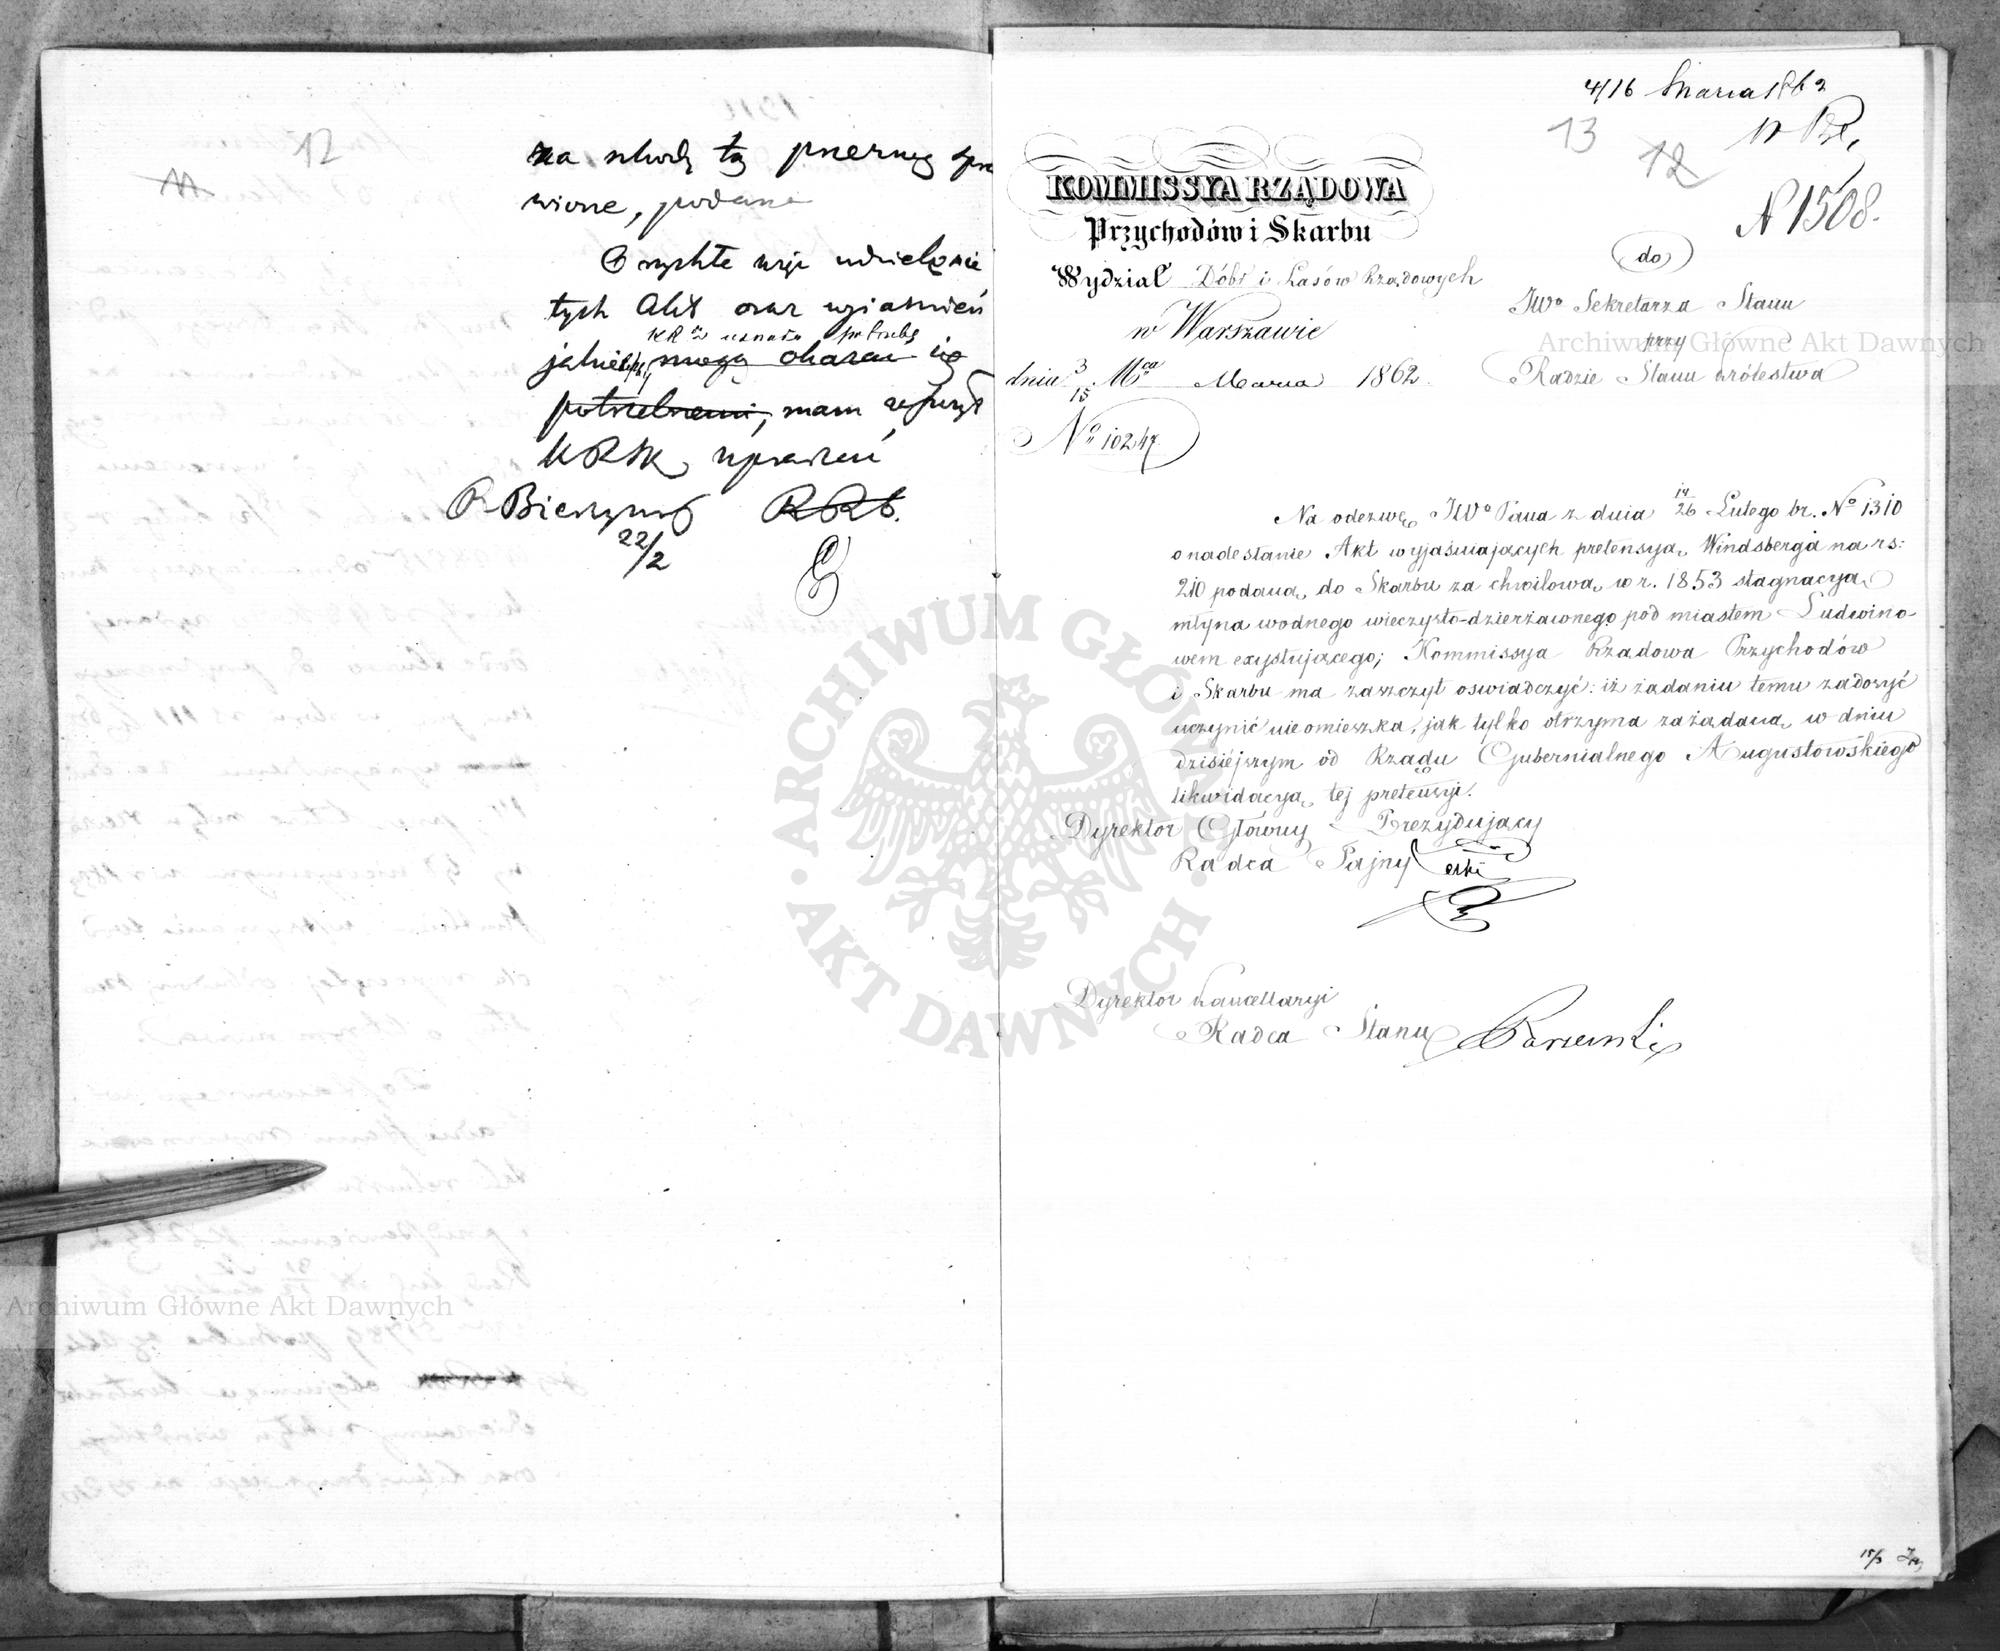 12
11
za szkodę tą przerwą spra
wione, podana
O rychłe więc udzielenie
tych Akt oraz wyjaśnień
KRSu uznała potrzebę
jakie mogą okazać się
potrzebnemi, mam zaszczyt
KRSk upraszać
22/2
4/16 Marca 1862
13
12
N 1508.
KOMMISSYA RZĄDOWA
Przychodów i Skarbu
Wydział Dóbr i Lasów Rządowych
w Warszawie
dnia 3/15 Mca Marca 1862.
No 10247.
do
JWo Sekretarza Stanu
przy
Radzie Stanu Królestwa
Na odezwę JWo Pana z dnia 14/26 Lutego br. No 1310
o nadesłanie Akt wyjaśniających pretensyą Windsberga na rs:
210 podaną do Skarbu za chwilową w r. 1853 stagnacyą
młyna wodnego wieczysto-dzierżawnego pod miastem Ludwino-
wem exystującego; Kommissya Rządowa Przychodów
i Skarbu ma zaszczyt oświadczyć: iż żądaniu temu zadosyć
uczynić nie omieszka, jak tylko otrzyma zażądaną w dniu
dzisiejszym od Rządu Gubernialnego Augustowskiego
likwidacyą tej pretensyi.
Dyrektor Główny Prezydujący
Radca Tajny
Dyrektor Kancellaryi
Radca Stanu
15/3
Archiwum Główne Akt Dawnych
Archiwum Główne Akt Dawnych
ARCHIWUM GŁÓWNE
AKT DAWNYCH